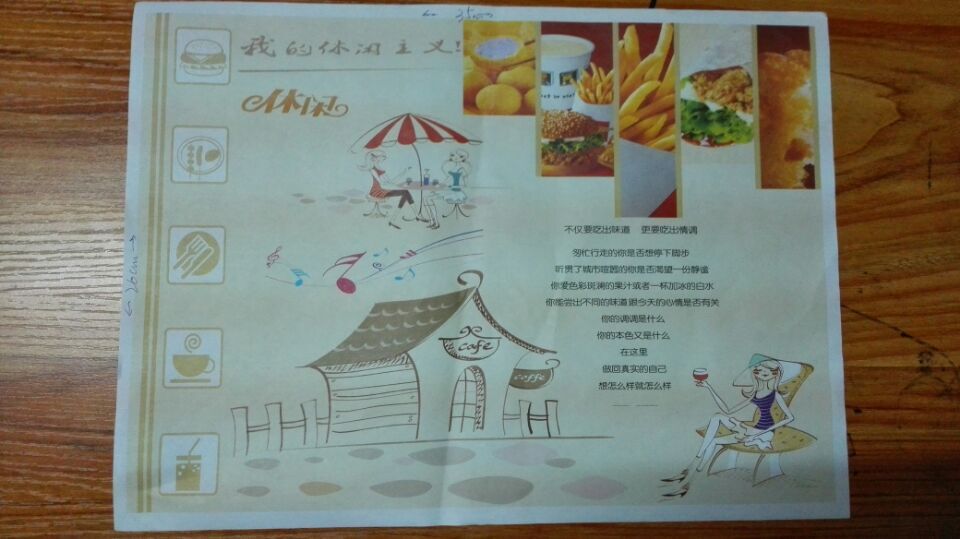 ← 35cm
我的休闲主义!
休闲
← 26cm →
不仅要吃出味道 更要吃出情调
匆忙行走的你是否想停下脚步
听惯了城市喧嚣的你是否渴望一份静谧
你爱色彩斑斓的果汁或者一杯加冰的白水
你能尝出不同的味道 跟今天的心情是否有关
你的调调是什么
你的本色又是什么
在这里
做回真实的自己
想怎么样就怎么样
cafe
coffe